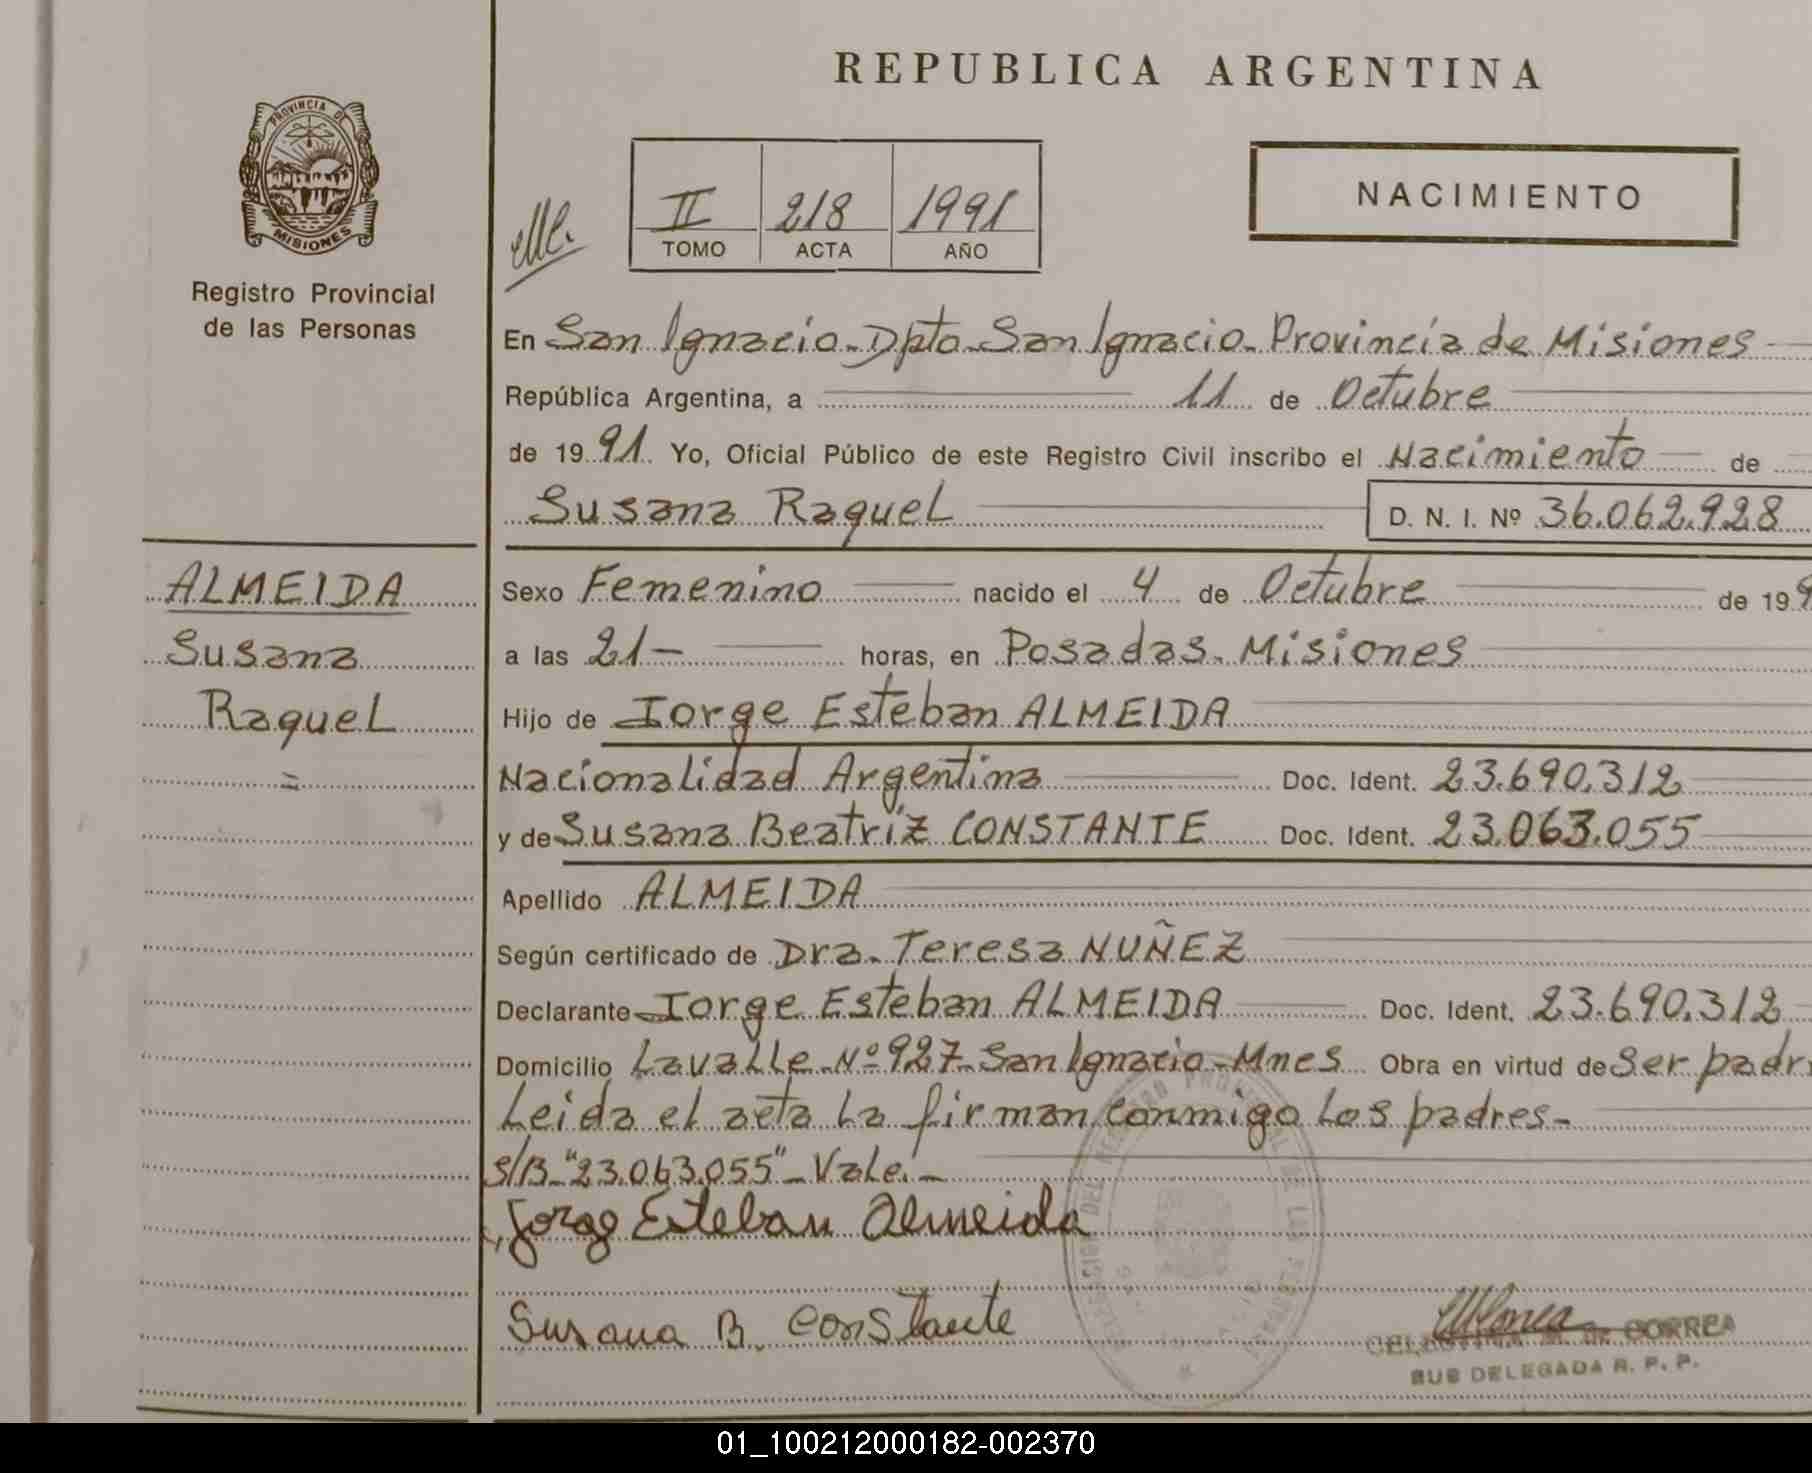 REPUBLICA ARGENTINA
PROVINCIA DE
MISIONES
Registro Provincial
de las Personas
II 218 1991
TOMO ACTA AÑO
NACIMIENTO
En San Ignacio - Dpto. San Ignacio - Provincia de Misiones
República Argentina, a 11 de Octubre
de 1991. Yo, Oficial Público de este Registro Civil inscribo el Nacimiento de
Susana Raquel D. N. I. Nº 36.062.928
ALMEIDA
Susana
Raquel
Sexo Femenino nacido el 4 de Octubre de 199
a las 21- horas, en Posadas - Misiones
Hijo de Jorge Esteban ALMEIDA
Nacionalidad Argentina Doc. Ident. 23.690.312
y de Susana Beatríz CONSTANTE Doc. Ident. 23.063.055
Apellido ALMEIDA
Según certificado de Dra. Teresa NUÑEZ
Declarante Jorge Esteban ALMEIDA Doc. Ident. 23.690.312
Domicilio Lavalle Nº 927 - San Ignacio - Mnes Obra en virtud de ser padr
Leida el acta la firman conmigo los padres-
S/B "23.063.055" - Vale.-
Jorge Esteban Almeida
Susana B. Constante
DE CORREA
SUB DELEGADA R. P. P.
01_100212000182-002370